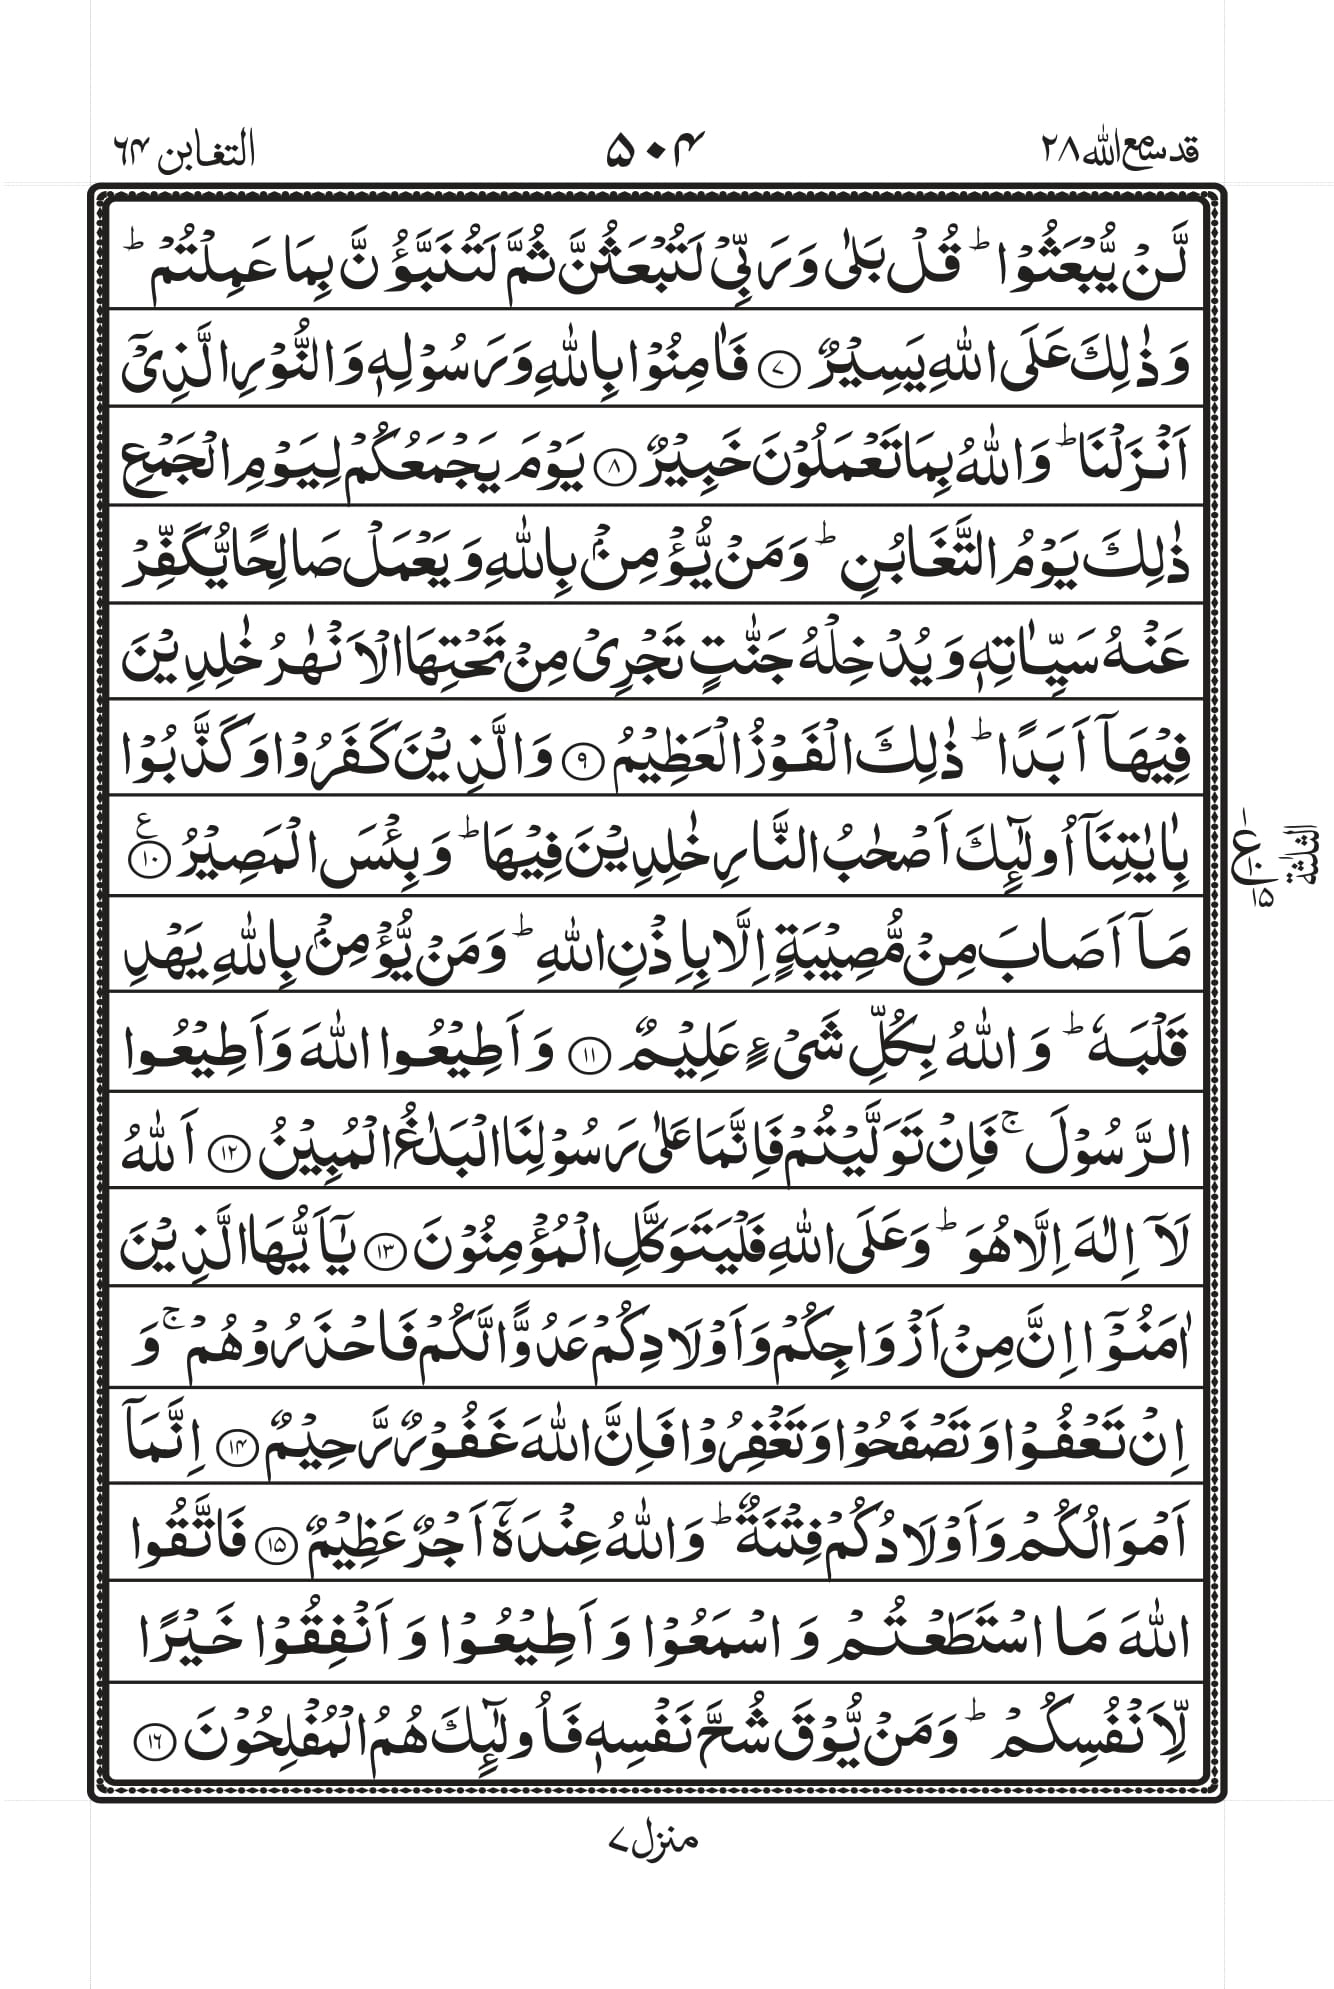 قد سمع الله ٢٨
۵۰۴
التغابن ۶۴
لَّنۡ يُّبۡعَثُوۡا ؕ قُلۡ بَلٰى وَرَبِّىۡ لَتُبۡعَثُنَّ ثُمَّ لَتُنَبَّؤُنَّ بِمَا عَمِلۡتُمۡ ؕ
وَذٰلِكَ عَلَى اللّٰهِ يَسِيۡرٌ ﴿۷﴾ فَاٰمِنُوۡا بِاللّٰهِ وَرَسُوۡلِهٖ وَالنُّوۡرِ الَّذِىۡۤ
اَنۡزَلۡنَا ؕ وَاللّٰهُ بِمَا تَعۡمَلُوۡنَ خَبِيۡرٌ ﴿۸﴾ يَوۡمَ يَجۡمَعُكُمۡ لِيَوۡمِ الۡجَمۡعِ
ذٰلِكَ يَوۡمُ التَّغَابُنِ ؕ وَمَنۡ يُّؤۡمِنۡۢ بِاللّٰهِ وَيَعۡمَلۡ صَالِحًا يُّكَفِّرۡ
عَنۡهُ سَيِّاٰتِهٖ وَيُدۡخِلۡهُ جَنّٰتٍ تَجۡرِىۡ مِنۡ تَحۡتِهَا الۡاَنۡهٰرُ خٰلِدِيۡنَ
فِيۡهَاۤ اَبَدًا ؕ ذٰلِكَ الۡفَوۡزُ الۡعَظِيۡمُ ﴿۹﴾ وَالَّذِيۡنَ كَفَرُوۡا وَكَذَّبُوۡا
بِاٰيٰتِنَاۤ اُولٰٓئِكَ اَصۡحٰبُ النَّارِ خٰلِدِيۡنَ فِيۡهَا ؕ وَبِئۡسَ الۡمَصِيۡرُ ﴿۱۰﴾ ع
مَاۤ اَصَابَ مِنۡ مُّصِيۡبَةٍ اِلَّا بِاِذۡنِ اللّٰهِ ؕ وَمَنۡ يُّؤۡمِنۡۢ بِاللّٰهِ يَهۡدِ
قَلۡبَهٗ ؕ وَاللّٰهُ بِكُلِّ شَىۡءٍ عَلِيۡمٌ ﴿۱۱﴾ وَاَطِيۡعُوا اللّٰهَ وَاَطِيۡعُوا
الرَّسُوۡلَ ۚ فَاِنۡ تَوَلَّيۡتُمۡ فَاِنَّمَا عَلٰى رَسُوۡلِنَا الۡبَلٰغُ الۡمُبِيۡنُ ﴿۱۲﴾ اَللّٰهُ
لَاۤ اِلٰهَ اِلَّا هُوَ ؕ وَعَلَى اللّٰهِ فَلۡيَتَوَكَّلِ الۡمُؤۡمِنُوۡنَ ﴿۱۳﴾ يٰۤاَيُّهَا الَّذِيۡنَ
اٰمَنُوۡۤا اِنَّ مِنۡ اَزۡوَاجِكُمۡ وَاَوۡلَادِكُمۡ عَدُوًّا لَّكُمۡ فَاحۡذَرُوۡهُمۡ ۚ وَ
اِنۡ تَعۡفُوۡا وَتَصۡفَحُوۡا وَتَغۡفِرُوۡا فَاِنَّ اللّٰهَ غَفُوۡرٌ رَّحِيۡمٌ ﴿۱۴﴾ اِنَّمَاۤ
اَمۡوَالُكُمۡ وَاَوۡلَادُكُمۡ فِتۡنَةٌ ؕ وَاللّٰهُ عِنۡدَهٗۤ اَجۡرٌ عَظِيۡمٌ ﴿۱۵﴾ فَاتَّقُوا
اللّٰهَ مَا اسۡتَطَعۡتُمۡ وَاسۡمَعُوۡا وَاَطِيۡعُوۡا وَاَنۡفِقُوۡا خَيۡرًا
لِّاَنۡفُسِكُمۡ ؕ وَمَنۡ يُّوۡقَ شُحَّ نَفۡسِهٖ فَاُولٰٓئِكَ هُمُ الۡمُفۡلِحُوۡنَ ﴿۱۶﴾
الثلثة
۱
ع
۱۰
۱۵
منزل ۷